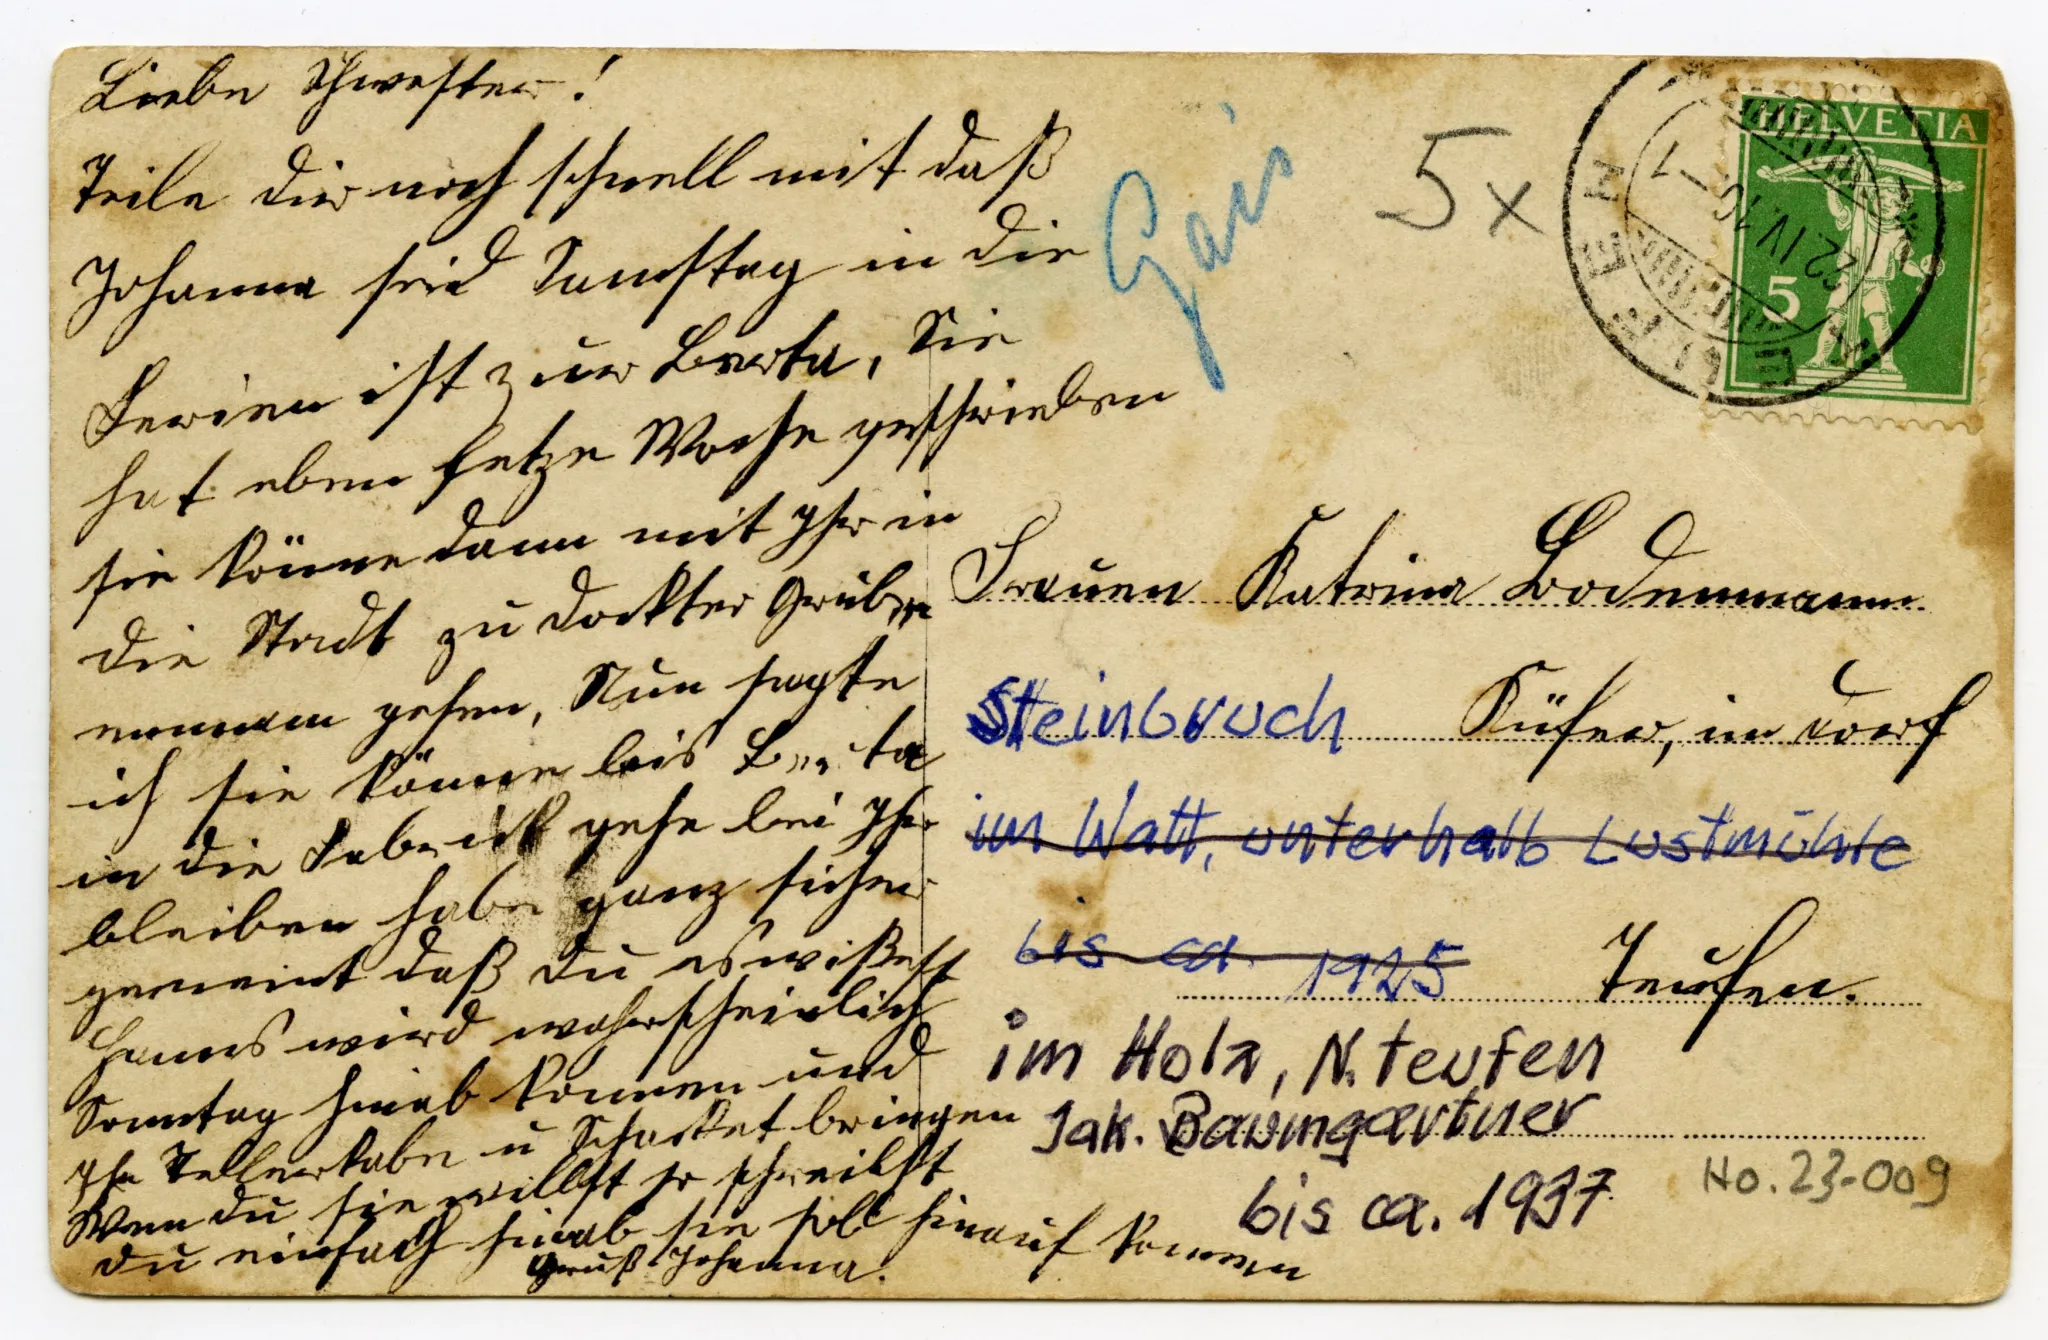 Liebe Schwester!
Teile dir noch schnell mit daß
Johanna seid Samstag in die
Ferien ist zur Berta, Sie
hat eben letze Woche geschrieben
sie könne dann mit Ihr in
die Stadt zu Docktor Gruben
mann gehen, Nun sagte
ich sie könne bis Berta
in die Fabrick gehe bei Ihr
bleiben habe ganz sicher
gemeint daß du es wißest
Hanns wird wahrscheinlich
Sonntag hinab kommen und
Ihr Kabe u Schacket bringen
Wenn du sie willst so schreibst
du einfach hinab sie soll hinauf kommen
Gruß Johanna.
Gais
5x
HELVETIA
5
TEUFEN
22.IV.10.–1
Frauen Katrina Bodenmann
Steinbruch Küfer, im Dorf
im Watt, unterhalb Lustmühle
bis ca. 1925 Teufen.
im Holz, N. teufen
Jak. Baumgartner
bis ca. 1937
Ho. 23-009